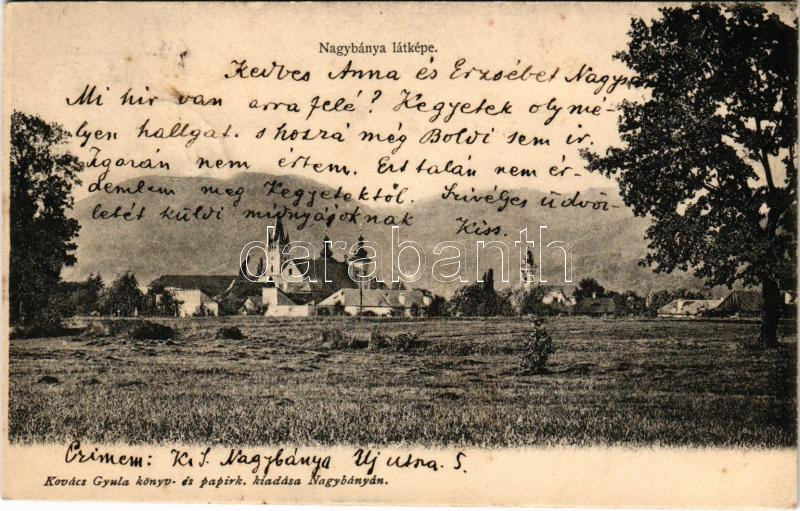 Nagybánya látképe.
Kedves Anna és Erzsébet
Mi hir van arra felé? Kegyetek oly mé-
lyen hallgat. s hozzá még Boldi sem ir.
Igazán nem értem. Ezt talán nem ér-
demlem meg Kegyetektől. Szivélyes üdvöz-
letét küldi mindnyájoknak Kiss.
graphia.hu
Czimem: K. J. Nagybánya Uj utcza. 5.
Kovács Gyula könyv- és papirk. kiadása Nagybányán.